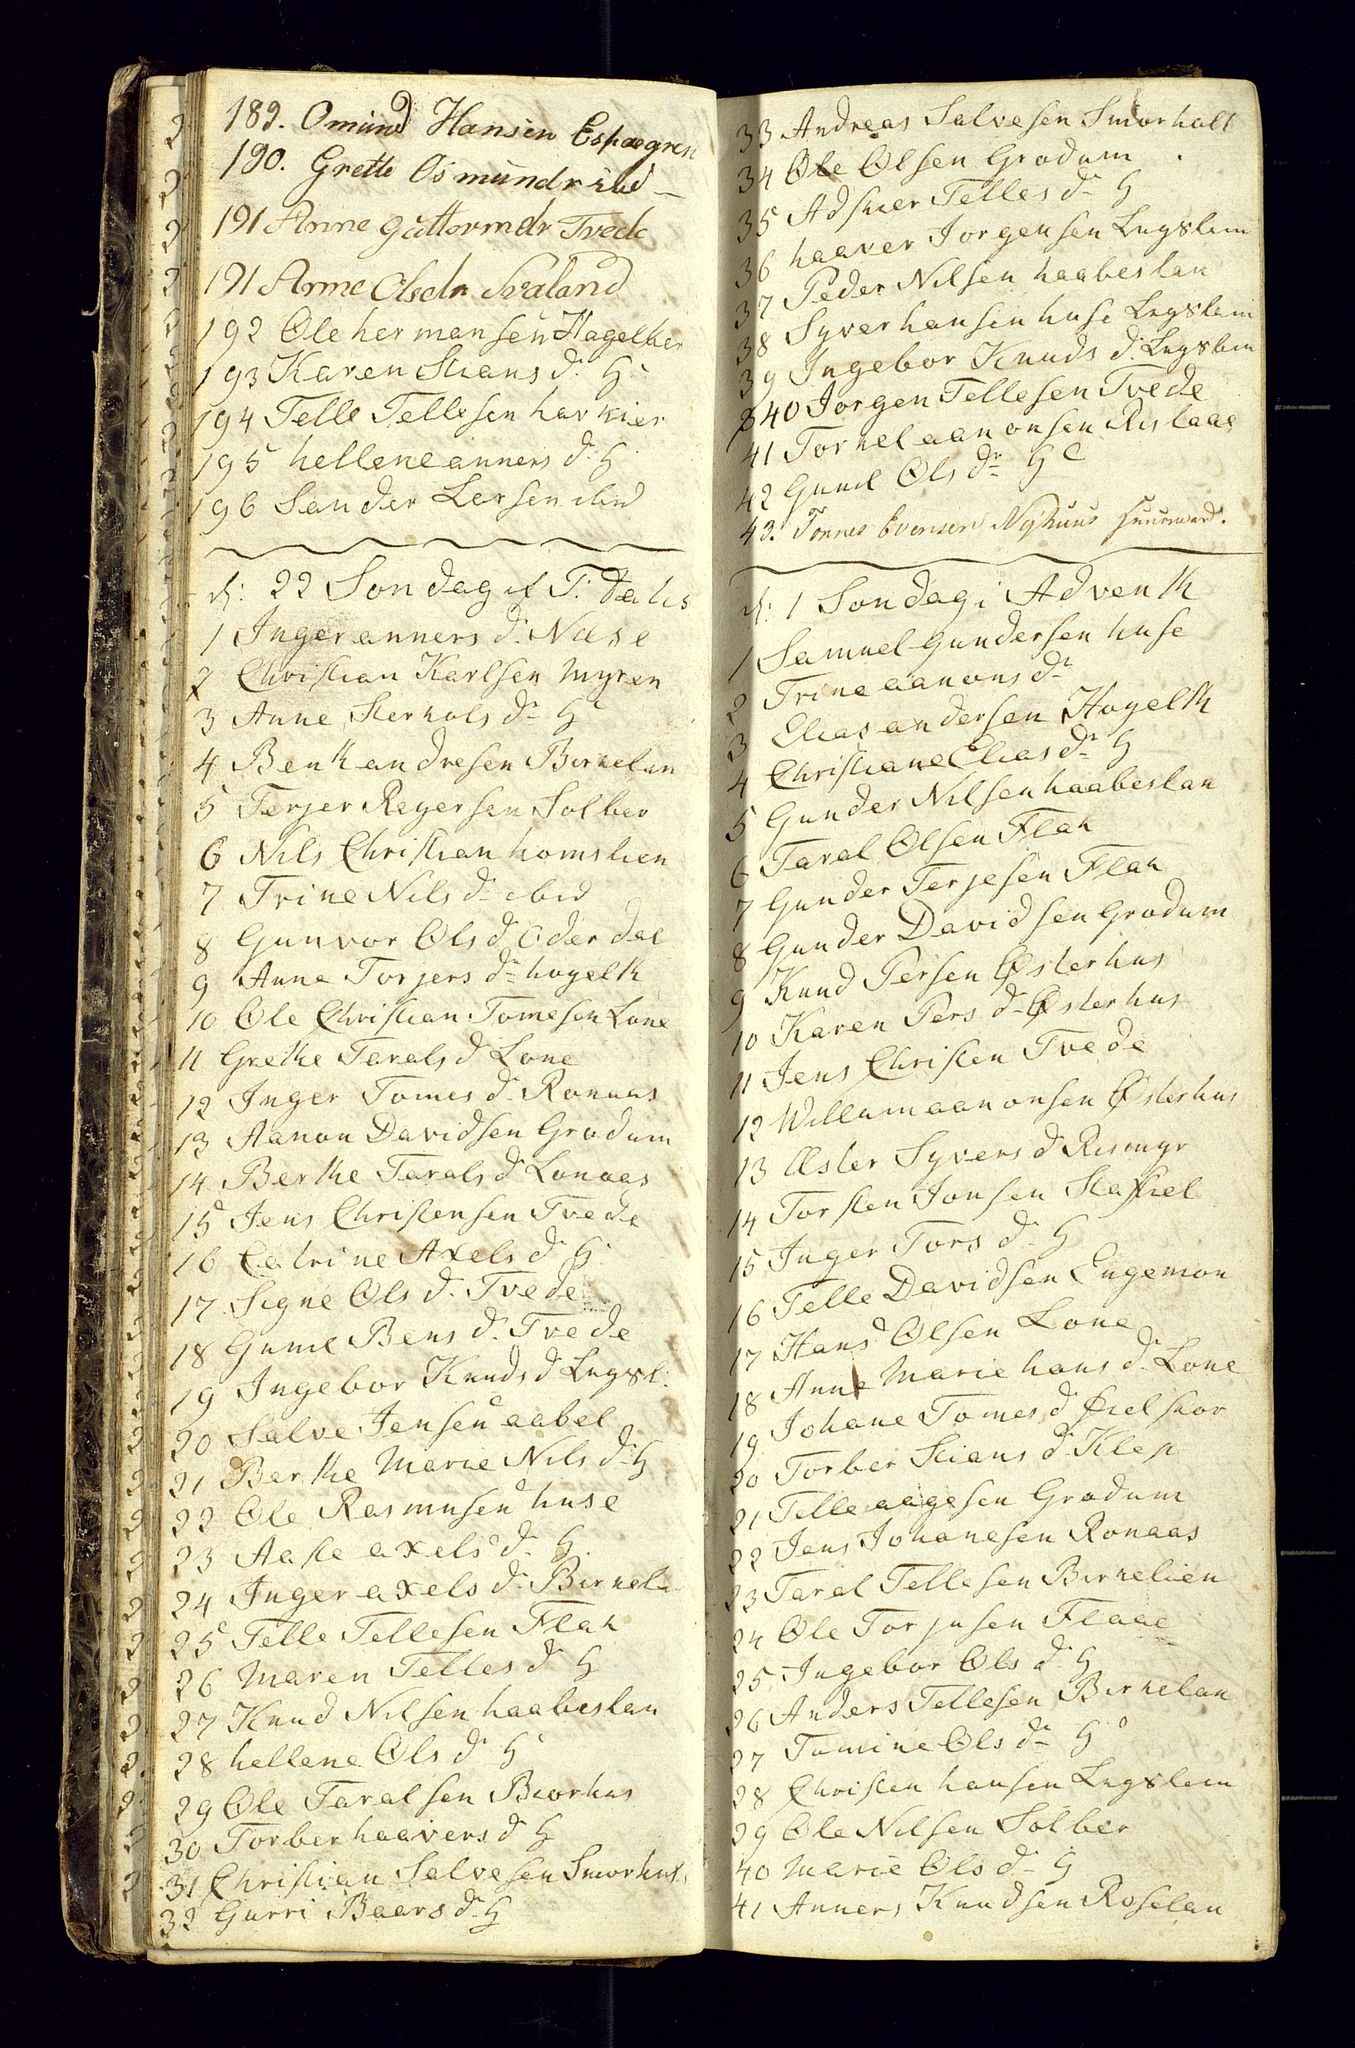 189. Omund Hansen Espægren
190. Grette Osmundr ibid
191 Anne guttormdr Trede
191 Anne Olsdr Svaland
192 Ole hermansen Hagelker
193 Karen Stians d. H
194 Telle Tellesen harkier
195 hellene anners d. H
196 Sander Lersen ibid
d: 22 Søndag ef T: Tatis
1 Inger anners d. Næse
2 Christian Karlsen myren
3 Anne Sterkols d. H
4 Benth andresen Birkelan
5 Terjer Reyersen Solber
6 Nils Christian homslien
7 Trine Nils d. ibid
8 Gunvor Ols d. Oderdal
9 Anne Torjers d. høgelth
10 Ole Christian Tomesen Lone
11 Grethe Tarals d Lone
12 Inger Tomes d. Ronaas
13 Aanon Davidsen Grødum
14 Berthe Tarals d. Lonaas
15 Jens Christensen Tvede
16 Catrine Axels d. H
17 Signe Ols d. Tvede
18 Gunil Bens d. Tvede
19 Ingebor Knuds d Lugsl:
20 Salve Jensen aabel
21 Berthe Marie Nils d. H
22 Ole Rasmusen huse
23 Aaste axels d. H
24 Inger axels d. Birkela
25 Telle Tellesen Flak
26 maren Telles d. H
27 Knud Nilsen haabeslan
28 hellene Ols d. H
29 Ole Taralsen Biorhus
30 Torber haavers d. H
31 Christian Salvesen Smorhult
32 Gurri Baars d. H
33 Andreas Salvesen Smorholt
34 Ole Olsen Grødum
35 Adsher Telles d. H
36 haaver Jorgensen Lugslam
37 Peder Nilsen haabeslan
38 Syver hansen huse Lugslam
39 Ingebor Knuds d. Lugslam
40 Jorgen Tellesen Tvede
41 Torkel aanonsen Rislaae
42 Gunil Ols dr H
43. Tønnes Evensen Nyhuus
d: 1 Søndag i Adventh
1 Samuel Gundersen huse
2 Trine aanons d.
3 Elias andersen Høgelth
4 Christiane Elias d. H
5 Gunder Nilsen haabeslan
6 Taral Olsen Flak
7 Gunder Terjesen Flak
8 Gunder Davidsen Grødum
9 Knud Persen Østerhus
10 Karen Pers d. Østerhus
11 Jens Christen Tvede
12 Willum aanonsen Østerhus
13 Aster Syvers d Rismyr
14 Torsten Jonsen
15 Inger Tors d. H
16 Telle Davidsen Engemon
17 Hans Olsen Lone
18 Anne Marie hans d. Lone
19 Johane Tomes d
20 Torber Stians d. Klep
21 Telle aagesen Grødum
22 Jens Johanesen Ronaas
23 Taral Tellesen Birkelien
24 Ole Torjusen Flaae
25 Ingebor Ols d. H
26 Anders Tellesen Birkelan
27 Tomine Ols d. H
28 Christen hansen Lugslam
29 Ole Nilsen Solber
40 Marie Ols d. H
41 Anners Knudsen Roselan